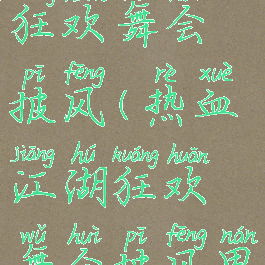 狂欢舞会
pī fēng rè xuè
披风(热血
Jiāng hú kuáng huān
江湖狂欢
wǔ huì pī fēng nán
舞会披风男